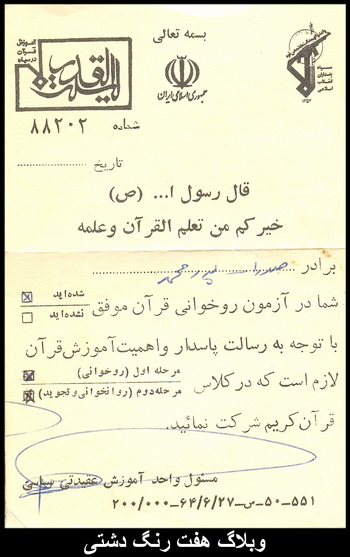 بسمه تعالی
آموزش قرآن در سپاه
لیلة القدر
جمهوری اسلامی ایران
سپاه پاسداران انقلاب اسلامی
شماره ۸۸۲۰۲
تاریخ
قال رسول ا... (ص)
خیرکم من تعلم القرآن وعلمه
برادر
شما در آزمون روخوانی قرآن موفق شده اید نشده اید
با توجه به رسالت پاسدار واهمیت آموزش قرآن
لازم است که در کلاس مرحله اول (روخوانی) مرحله دوم (روانخوانی و تجوید)
قرآن کریم شرکت نمائید.
مسئول واحد آموزش عقیدتی سیاسی
۲۰۰/۰۰۰-۶۴/۶/۲۷-س-۵۰-۵۵۱
وبلاگ هفت رنگ دشتی